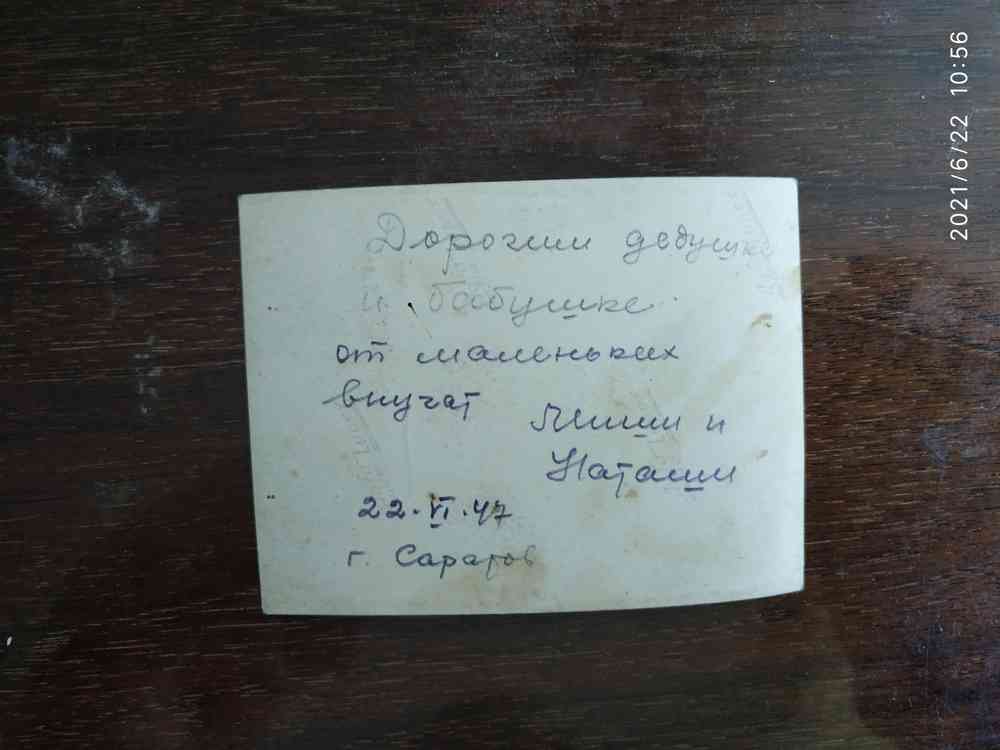 Дорогим дедушке
и бабушке
от маленьких
внучат
Миши и
Наташи
22.VI.47
г. Саратов
2021/6/22 10:56